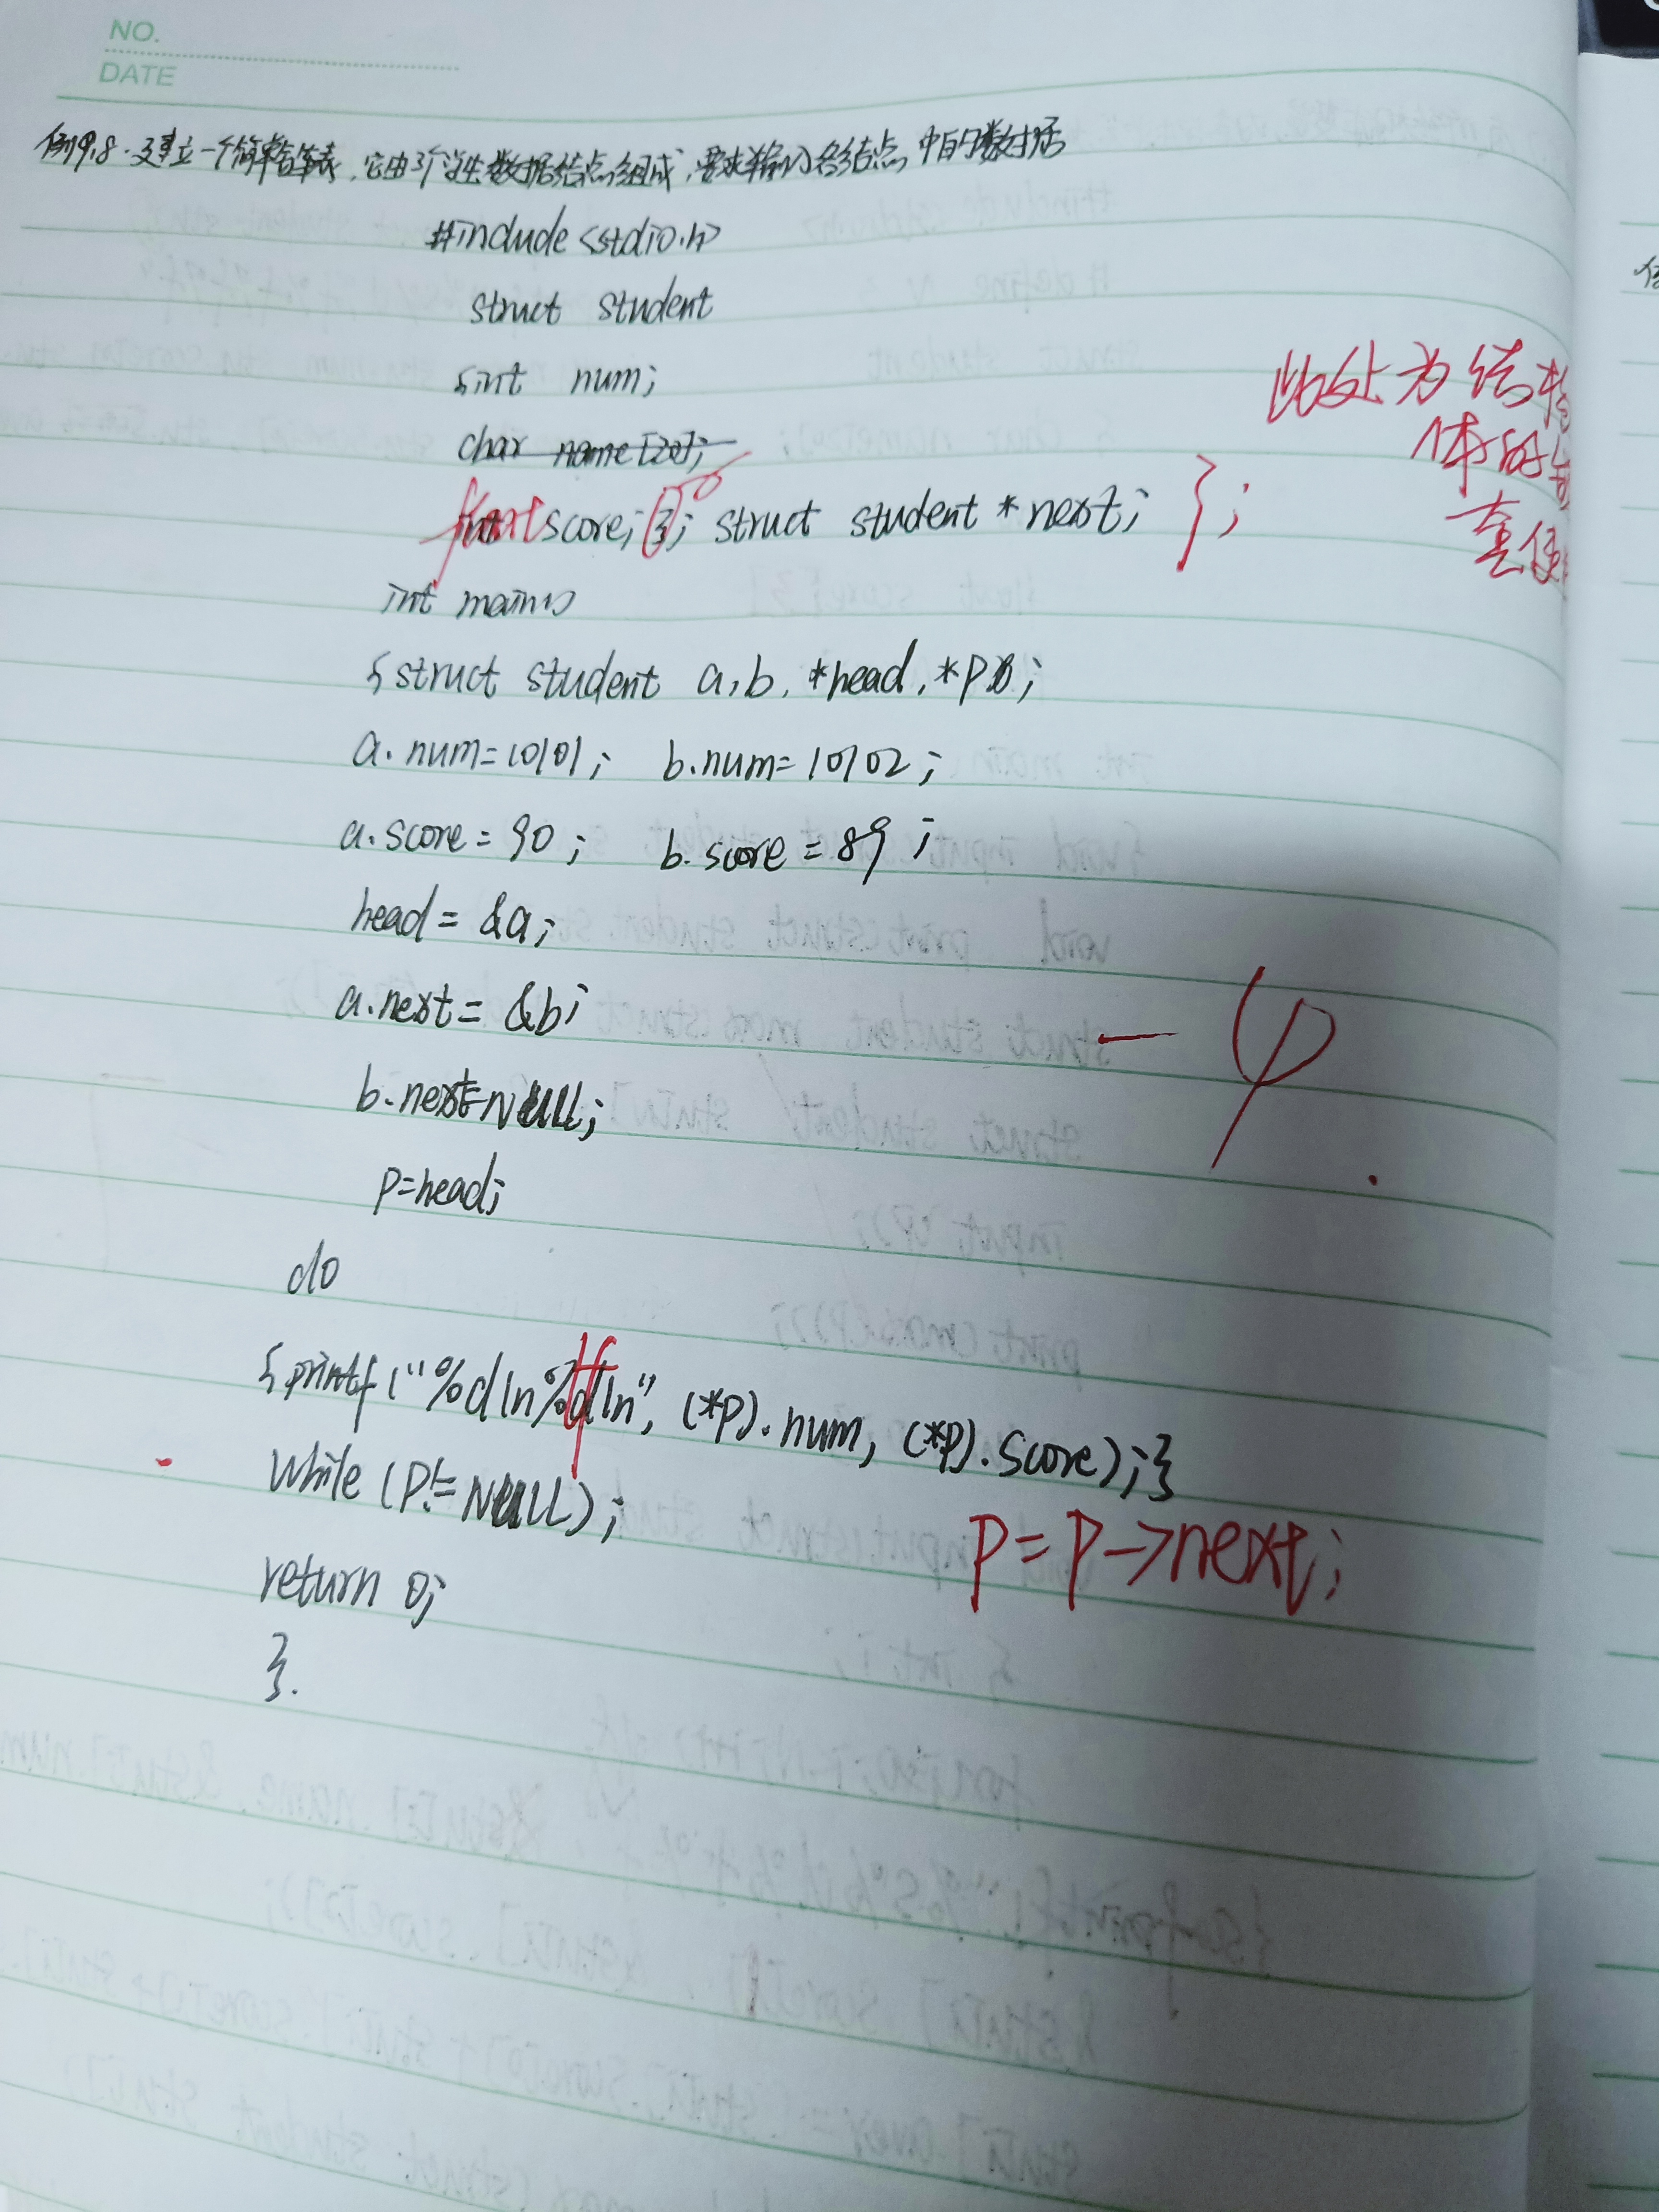 NO.
DATE
例9.8.建立一个简单链表,它由3个学生数据结点组成,要求输出各结点中的数据
#include <stdio.h>
struct student
{int num;
char name[20];
float score; }; struct student *next; };
此处为结构
体的
套
int main()
{struct student a,b,*head,*p;
a.num=10101; b.num=10102;
a.score=90; b.score=89;
head=&a;
a.next=&b;
b.next=NULL;
p=head;
do
{printf("%d\n%f\n",(*p).num,(*p).score);}
while(p!=NULL);
p=p->next;
return 0;
}.